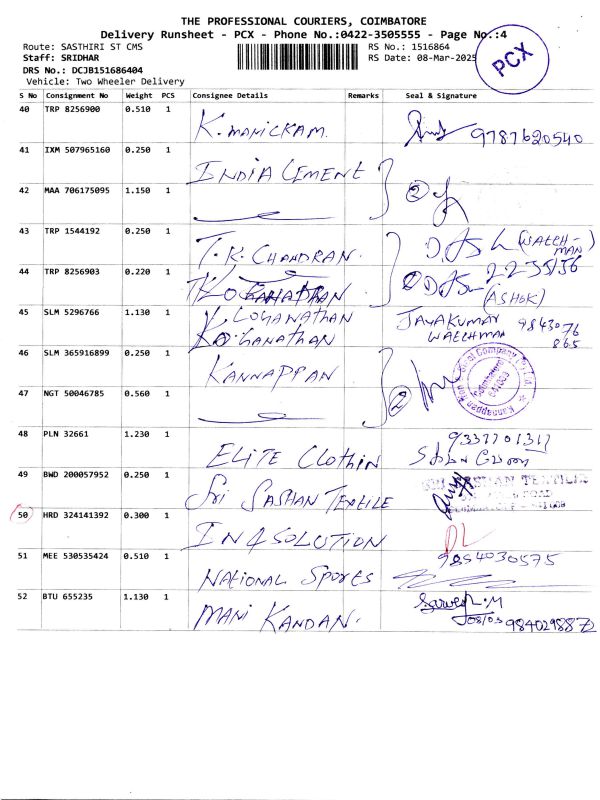 THE PROFESSIONAL COURIERS, COIMBATORE
Delivery Runsheet - PCX - Phone No.:0422-3505555 - Page No.:4
Route: SASTHIRI ST CMS RS No.: 1516864
Staff: SRIDHAR RS Date: 08-Mar-2025
PCX
DRS No.: DCJB151686404
Vehicle: Two Wheeler Delivery
S No Consignment No Weight PCS Consignee Details Remarks Seal & Signature
40 TRP 8256900 0.510 1 K. MANICKAM 9787620540
41 IXM 507965160 0.250 1 INDIA CEMENT
42 MAA 706175095 1.150 1 2
43 TRP 1544192 0.250 1 T.K. CHANDRAN. (WATCH-MAN)
44 TRP 8256903 0.220 1 2 2235156
(ASHOK)
45 SLM 5296766 1.130 1 K. LOGANATHAN JAYAKUMAR 9843076
WATCHMAN 865
46 SLM 365916899 0.250 1 KANNAPPAN
47 NGT 50046785 0.560 1 2
48 PLN 32661 1.230 1 ELITE Clothin
49 BWD 200057952 0.250 1 Sri SASHAN TEXTILE
50 HRD 324141392 0.300 1 IN4SOLUTION
51 MEE 530535424 0.510 1 NATIONAL SPORTS 9854030575
52 BTU 655235 1.130 1 MANI KANDAN. 08/03 9840298872